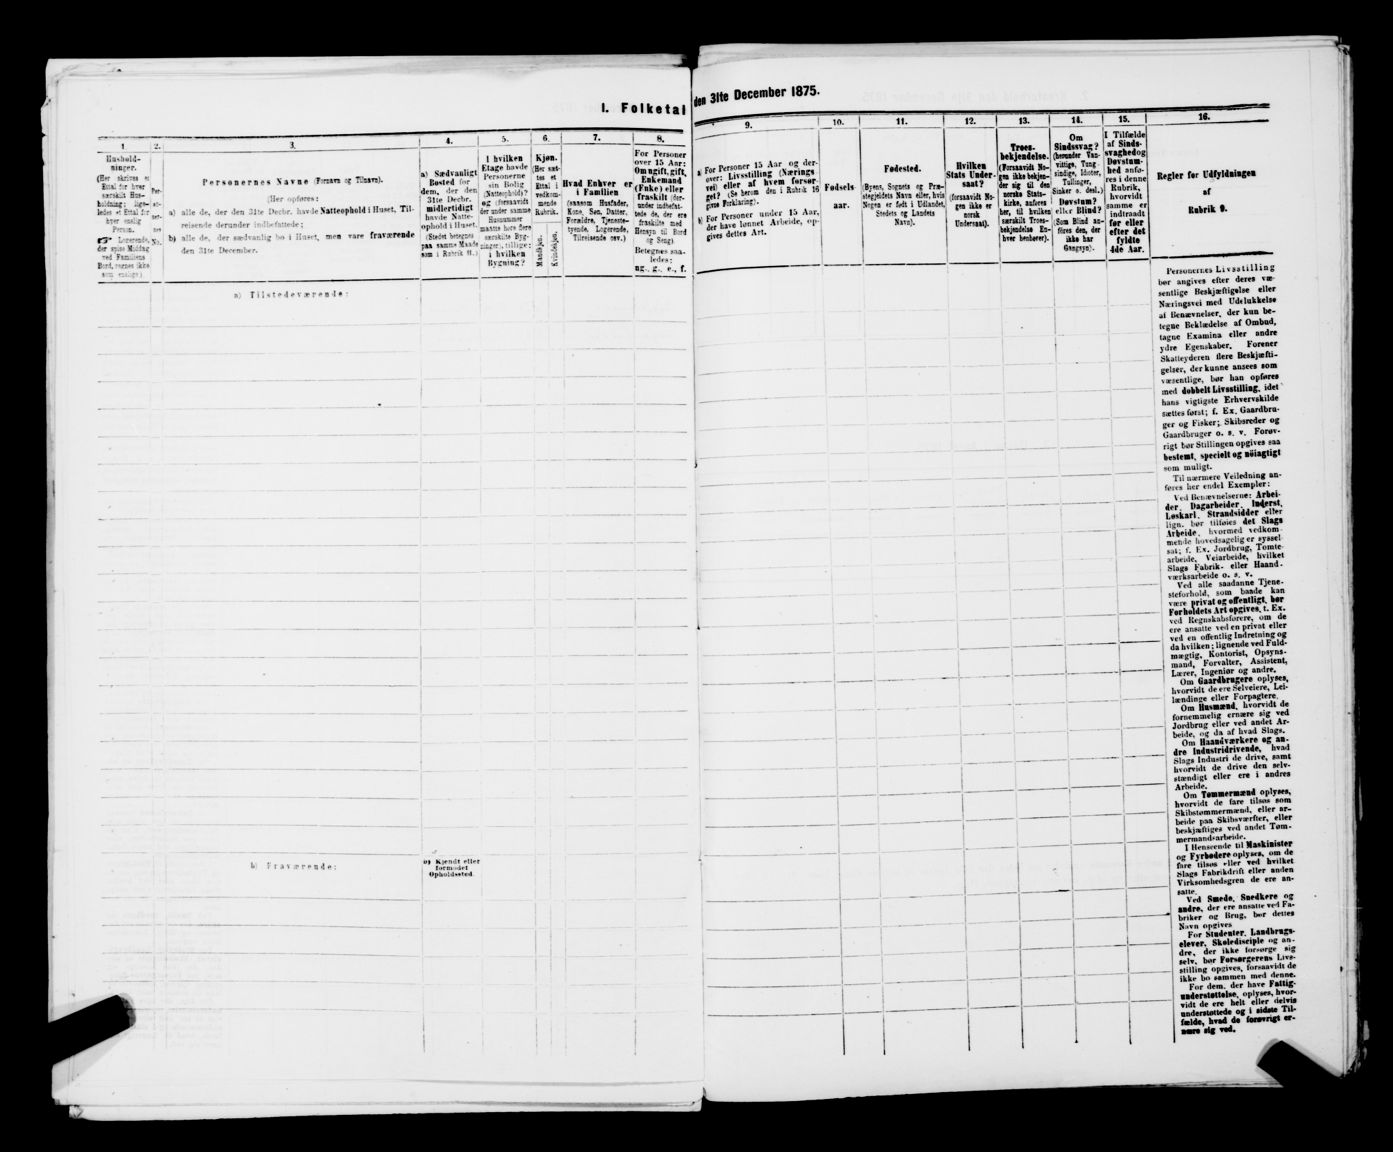 I. Folketal
den 31te December 1875.
1
Hushold-
ninger.
(Her skrives et
Ettal for hver
særskilt Hus-
holdning; lige-
ledes et Ettal for
hver enslig
Person.
☞ Logerende,
der spise Middag
ved Familiens
Bord, regnes ikke
som enslige.)
2.
Per-
so-
ner
No.
3.
Personernes Navne (Fornavn og Tilnavn).
(Her opføres:
a) alle de, der den 31te Decbr. havde Natteophold i Huset, Til-
reisende derunder indbefattede;
b) alle de, der sædvanlig bo i Huset, men vare fraværende
den 31te December.
4.
a) Sædvanligt
Bosted for
dem, der den
31te Decbr.
midlertidigt
havde Natte-
ophold i Huset.
(Stedet betegnes
paa samme Maade
som i Rubrik 11.)
5.
I hvilken
Etage havde
Personerne
sin Bolig
(Natteophold)?
og (forsaavidt
der under samme
Husnummer
maatte høre flere
særskilte Byg-
ninger), tillige:
i hvilken
Bygning?
6.
Kjøn.
(Her sæt-
tes et
Ettal i
vedkom-
mende
Rubrik.
Mandkjøn.
Kvindekjøn.
7.
Hvad Enhver er
i Familien
(saasom Husfader,
Kone, Søn, Datter,
Forældre, Tjeneste-
tyende, Logerende,
Tilreisende osv.)
8.
For Personer
over 15 Aar:
Om ugift, gift,
Enkemand
(Enke) eller
fraskilt (der-
under indbefat-
tede de, der ere
fraskilte med
Hensyn til Bord
og Seng).
Betegnes saa-
ledes:
ug., g., e., f.
9.
a) For Personer 15 Aar og der-
over: Livsstilling (Nærings-
vei) eller af hvem forsør-
get? (Se herom den i Rubrik 16
givne Forklaring).
b) For Personer under 15 Aar,
der have lønnet Arbeide, op-
gives dettes Art.
10.
Fødsels-
aar.
11.
Fødested.
(Byens, Sognets og Præ-
stegjeldets Navn eller, hvis
Nogen er født i Udlandet,
Stedets og Landets
Navn).
12.
Hvilken
Stats Under-
saat?
(forsaavidt No-
gen ikke er
norsk
Undersaat).
13.
Troes-
bekjendelse.
(Forsaavidt No-
gen ikke bekjen-
der sig til den
norske Stats-
kirke, anføres
her, til hvilken
særskilt Troes-
bekjendelse En-
hver henhører).
14.
Om
Sindssvag?
(herunder Van-
vittige, Tung-
sindige, Idioter,
Tullinger,
Sinker o. desl.)
Døvstum?
eller Blind?
(Som Blind an-
føres den, der
ikke har
Gangsyn).
15.
I Tilfælde
af Sinds-
svaghed og
Døvstum-
hed anfø-
res i denne
Rubrik,
hvorvidt
samme er
indtraadt
før eller
efter det
fyldte
4de Aar.
16.
Regler for Udfyldningen
af
Rubrik 9.
a) Tilstedeværende:
b) Fraværende:
b) Kjendt eller
formodet
Opholdssted.
Personernes Livsstilling
bør angives efter deres væ-
sentlige Beskjæftigelse eller
Næringsvei med Udelukkelse
af Benævnelser, der kun be-
tegne Beklædelse af Ombud,
tagne Examina eller andre
ydre Egenskaber. Forener
Skatteyderen flere Beskjæfti-
gelser, der kunne ansees som
væsentlige, bør han opføres
med dobbelt Livsstilling, idet
hans vigtigste Erhvervskilde
sættes først; f. Ex. Gaardbru-
ger og Fisker; Skibsreder og
Gaardbruger o. s. v. Forøv-
rigt bør Stillingen opgives saa
bestemt, specielt og nöiagtigt
som muligt.
Til nærmere Veiledning an-
føres her endel Exempler:
Ved Benævnelserne: Arbei-
der, Dagarbeider, Inderst,
Løskarl, Strandsidder eller
lign. bør tilføies det Slags
Arbeide, hvormed vedkom-
mende hovedsagelig er syssel-
sat; f. Ex. Jordbrug, Tomte-
arbeide, Veiarbeide, hvilket
Slags Fabrik- eller Haand-
værksarbeide o. s. v.
Ved alle saadanne Tjene-
steforhold, som baade kan
være privat og offentligt, bør
Forholdets Art opgives, t. Ex.
ved Regnskabsførere, om de
ere ansatte ved en privat eller
ved en offentlig Indretning og
da hvilken; lignende ved Fuld-
mægtig, Kontorist, Opsyns-
mand, Forvalter, Assistent,
Lærer, Ingeniør og andre.
Om Gaardbrugere oplyses,
hvorvidt de ere Selveiere, Lei-
lændinge eller Forpagtere.
Om Husmænd, hvorvidt de
fornemmelig ernære sig ved
Jordbrug eller ved andet Ar-
beide, og da af hvad Slags.
Om Haandværkere og an-
dre Industridrivende, hvad
Slags Industri de drive, samt
hvorvidt de drive den selv-
stændigt eller ere i andres
Arbeide.
Om Tømmermænd oplyses,
hvorvidt de fare tilsøs som
Skibstømmermænd, eller ar-
beide paa Skibsværfter, eller
beskjæftiges ved andet Tøm-
mermandsarbeide.
I Henseende til Maskinister
og Fyrbødere oplyses, om de
fare tilsøs eller ved hvilket
Slags Fabrikdrift eller anden
Virksomhedsgren de ere an-
satte.
Ved Smede, Snedkere og
andre, der ere ansatte ved Fa-
briker og Brug, bør dettes
Navn opgives
For Studenter, Landbrugs-
elever, Skoledisciple og an-
dre, der ikke forsørge sig
selv, bør Forsørgerens Livs-
stilling opgives, forsaavidt de
ikke bo sammen med denne.
For dem, der have Fattig-
understøttelse, oplyses, hvor-
vidt de ere helt eller delvis
understøttede og i sidste Til-
fælde, hvad de forøvrigt er-
nære sig ved.